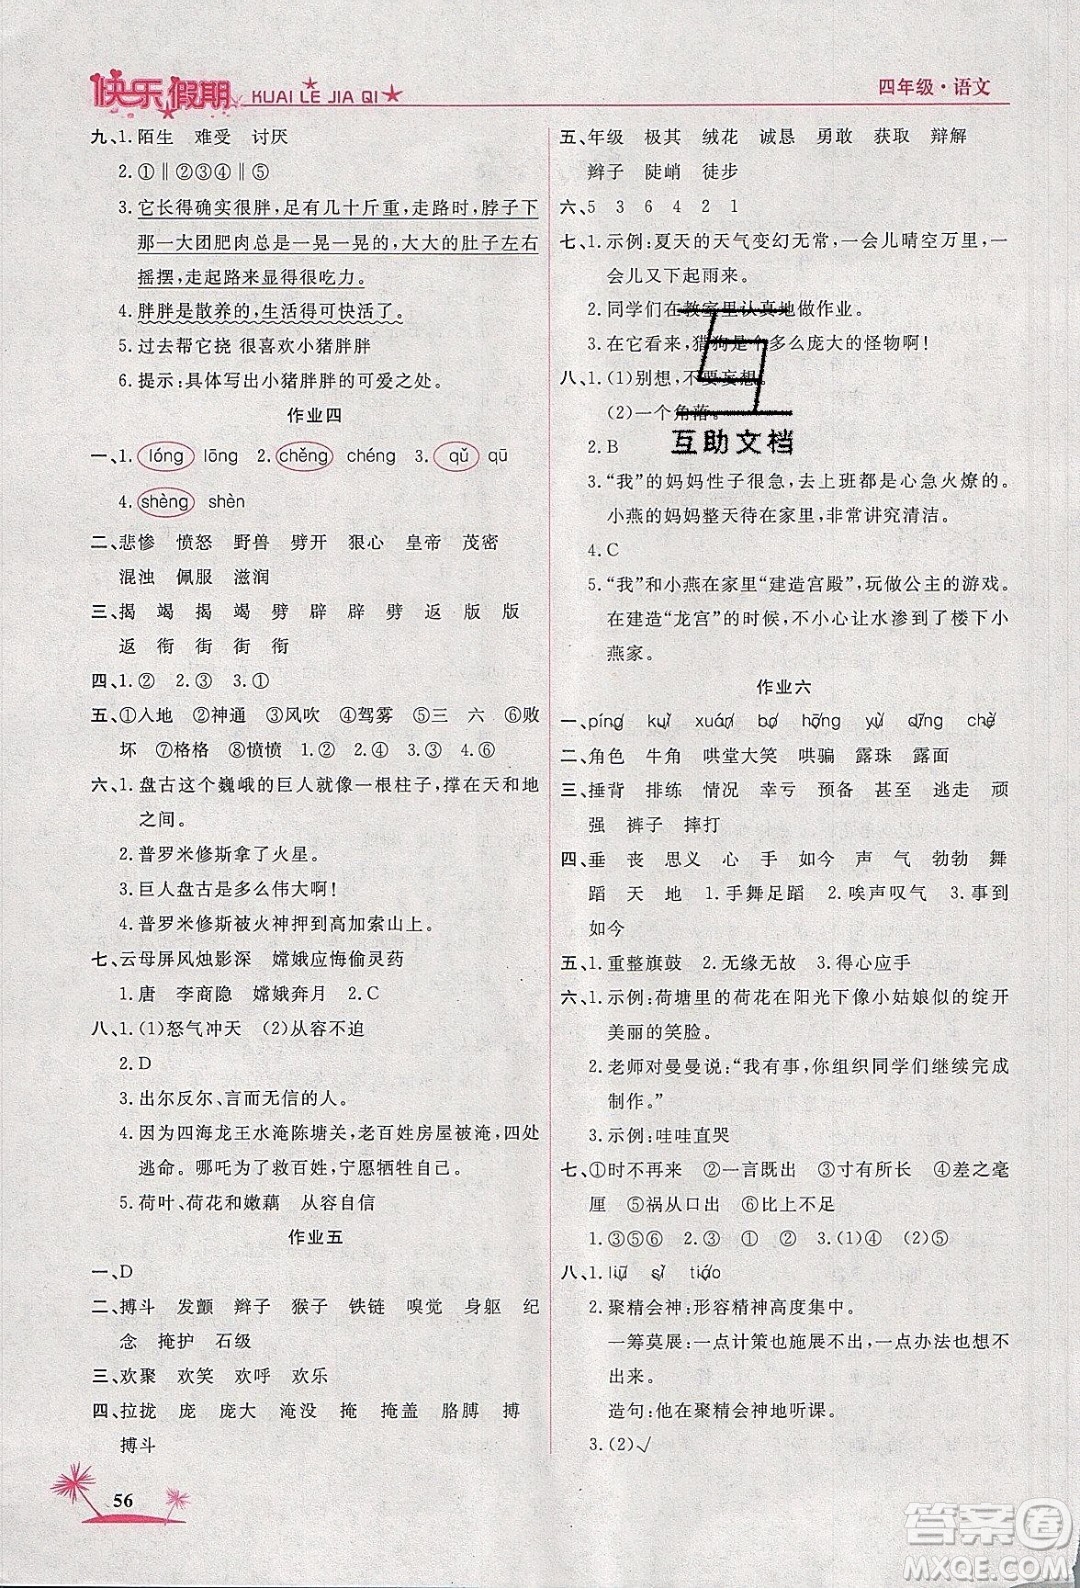 快乐假期 KUAI LE JIA QI
四年级·语文
九、1.陌生 难受 讨厌
2.①‖②③④‖⑤
3.它长得确实很胖,足有几十斤重,走路时,脖子下
那一大团肥肉总是一晃一晃的,大大的肚子左右
摇摆,走起路来显得很吃力。
4.胖胖是散养的,生活得可快活了。
5.过去帮它挠 很喜欢小猪胖胖
6.提示:具体写出小猪胖胖的可爱之处。
作业四
一、1.lóng lōng 2.chěng chéng 3.qǔ qū
4.shèng shèn
二、悲惨 愤怒 野兽 劈开 狠心 皇帝 茂密
混浊 佩服 滋润
三、揭 竭 揭 竭 劈 辟 辟 劈 返 版 版
返 衔 街 街 衔
四、1.② 2.③ 3.①
五、①人地 ②神通 ③风吹 ④驾雾 ⑤三 六 ⑥败
坏 ⑦格格 ⑧愤愤 1.② 2.③ 3.④ 4.⑥
六、1.盘古这个巍峨的巨人就像一根柱子,撑在天和地
之间。
2.普罗米修斯拿了火星。
3.巨人盘古是多么伟大啊!
4.普罗米修斯被火神押到高加索山上。
七、云母屏风烛影深 嫦娥应悔偷灵药
1.唐 李商隐 嫦娥奔月 2.C
八、1.(1)怒气冲天 (2)从容不迫
2.D
3.出尔反尔、言而无信的人。
4.因为四海龙王水淹陈塘关,老百姓房屋被淹,四处
逃命。哪吒为了救百姓,宁愿牺牲自己。
5.荷叶、荷花和嫩藕 从容自信
作业五
一、D
二、搏斗 发颤 辫子 猴子 铁链 嗅觉 身躯 纪
念 掩护 石级
三、欢聚 欢笑 欢呼 欢乐
四、拉拢 庞 庞大 淹没 掩 掩盖 胳膊 搏
搏斗
56
五、年级 极其 绒花 诚恳 勇敢 获取 辩解
辫子 陡峭 徒步
六、5 3 6 4 2 1
七、1.示例:夏天的天气变幻无常,一会儿晴空万里,一
会儿又下起雨来。
2.同学们在教室里认真地做作业。
3.在它看来,猎狗是个多么庞大的怪物啊!
八、1.(1)别想,不要妄想。
(2)一个角落。
互助文档
2.B
3.“我”的妈妈性子很急,去上班都是心急火燎的。
小燕的妈妈整天待在家里,非常讲究清洁。
4.C
5.“我”和小燕在家里“建造宫殿”,玩做公主的游戏。
在建造“龙宫”的时候,不小心让水渗到了楼下小
燕家。
作业六
一、píng kuī xuán bo hōng yù dīng chè
二、角色 牛角 哄堂大笑 哄骗 露珠 露面
三、捶背 排练 情况 幸亏 预备 甚至 逃走 顽
强 裤子 摔打
四、垂 丧 思义 心 手 如今 声 气 勃勃 舞
蹈 天 地 1.手舞足蹈 2.唉声叹气 3.事到
如今
五、1.重整旗鼓 2.无缘无故 3.得心应手
六、1.示例:荷塘里的荷花在阳光下像小姑娘似的绽开
美丽的笑脸。
2.老师对曼曼说:“我有事,你组织同学们继续完成
制作。”
3.示例:哇哇直哭
七、①时不再来 ②一言既出 ③寸有所长 ④差之毫
厘 ⑤祸从口出 ⑥比上不足
1.③⑤⑥ 2.③ 3.① 4.(1)④ (2)⑤
八、1.liū sī tiáo
2.聚精会神:形容精神高度集中。
一筹莫展:一点计策也施展不出,一点办法也想不
出。
造句:他在聚精会神地听课。
3.(2)√
答案圈
MXQE.COM